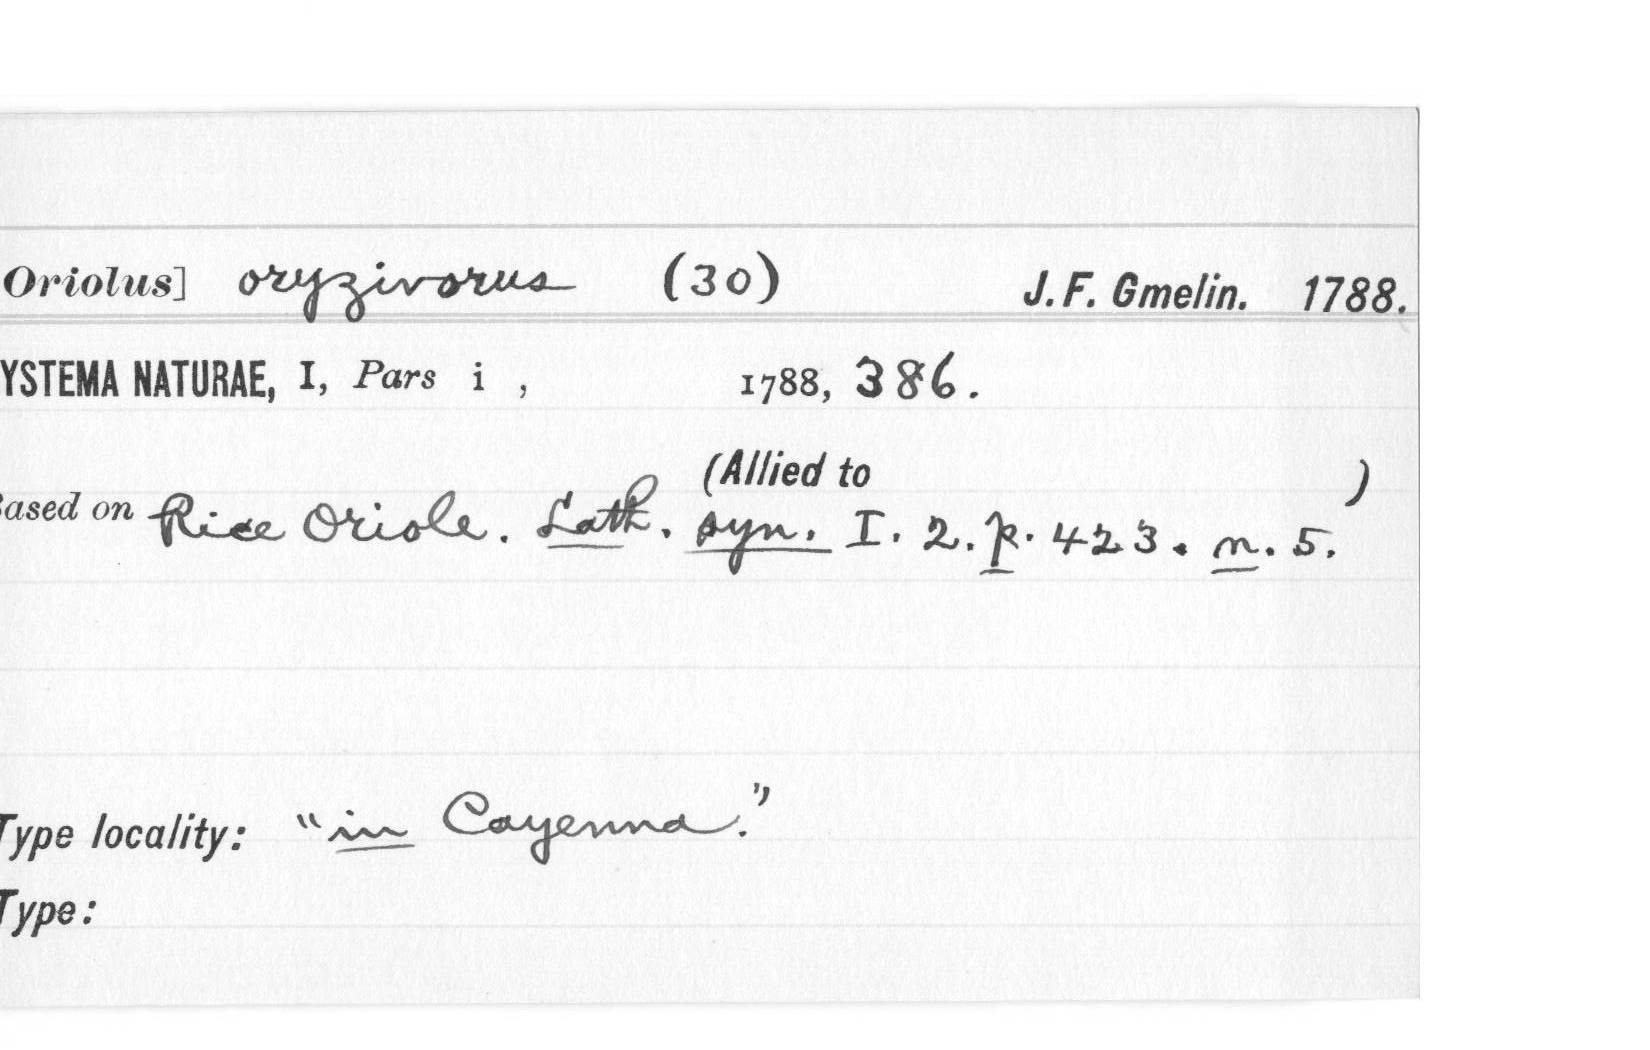 Oriolus] oryzivorus (30) J. F. Gmelin. 1788.
YSTEMA NATURAE, I, Pars i , 1788, 386.
(Allied to )
ased on Rice Oriole. Lath. syn. I. 2. p. 423. n. 5.
Type locality: "in Cayenna."
Type: